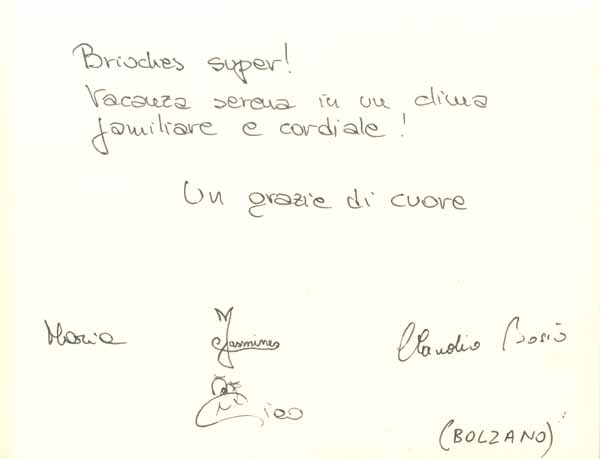 Brioches super!
Vacanza serena in un clima
familiare e cordiale!
Un grazie di cuore
Maria
Jasmines
Claudio
(BOLZANO)